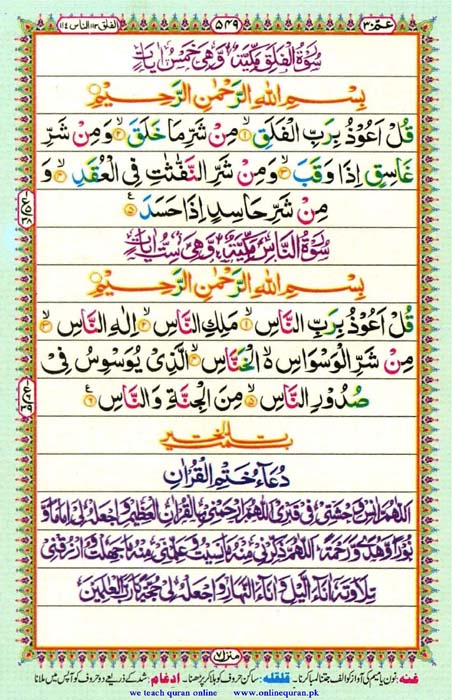 عمّ ٣٠
٥٤٩
الفلق ١١٣ الناس ١١٤
سُوْرَةُ الْفَلَقِ مَكِّيَّةٌ وَّهِىَ خَمْسُ اٰيَاتٍ
بِسْمِ اللّٰهِ الرَّحْمٰنِ الرَّحِيْمِ
قُلْ اَعُوْذُ بِرَبِّ الْفَلَقِ ۙ۱ مِنْ شَرِّ مَا خَلَقَ ۙ۲ وَمِنْ شَرِّ
غَاسِقٍ اِذَا وَقَبَ ۙ۳ وَمِنْ شَرِّ النَّفّٰثٰتِ فِى الْعُقَدِ ۙ۴ وَ
مِنْ شَرِّ حَاسِدٍ اِذَا حَسَدَ ۵
سُوْرَةُ النَّاسِ مَكِّيَّةٌ وَّهِىَ سِتُّ اٰيَاتٍ
بِسْمِ اللّٰهِ الرَّحْمٰنِ الرَّحِيْمِ
قُلْ اَعُوْذُ بِرَبِّ النَّاسِ ۙ۱ مَلِكِ النَّاسِ ۙ۲ اِلٰهِ النَّاسِ ۙ۳
مِنْ شَرِّ الْوَسْوَاسِ ۙ۬ الْخَنَّاسِ ۙ۴ الَّذِىْ يُوَسْوِسُ فِىْ
صُدُوْرِ النَّاسِ ۙ۵ مِنَ الْجِنَّةِ وَالنَّاسِ ۶
تمت بالخير
دُعَآءُ خَتْمِ الْقُرْاٰنِ
اَللّٰهُمَّ اٰنِسْ وَحْشَتِىْ فِىْ قَبْرِىْ اَللّٰهُمَّ ارْحَمْنِىْ بِالْقُرْاٰنِ الْعَظِيْمِ وَاجْعَلْهُ لِىْ اِمَامًا وَّ
نُوْرًا وَّهُدًى وَّرَحْمَةً اَللّٰهُمَّ ذَكِّرْنِىْ مِنْهُ مَا نَسِيْتُ وَعَلِّمْنِىْ مِنْهُ مَا جَهِلْتُ وَارْزُقْنِىْ
تِلَاوَتَهٗ اٰنَآءَ الَّيْلِ وَاٰنَآءَ النَّهَارِ وَاجْعَلْهُ لِىْ حُجَّةً يَّا رَبَّ الْعٰلَمِيْنَ
منزل ٧
غنه: نون یا میم کی آواز کو الف جتنا لمبا کرنا۔ قلقله: ساکن حروف کو ہلا کر پڑھنا۔ ادغام: شد کے ذریعے دو حروف کو آپس میں ملانا
we teach quran online www.onlinequran.pk